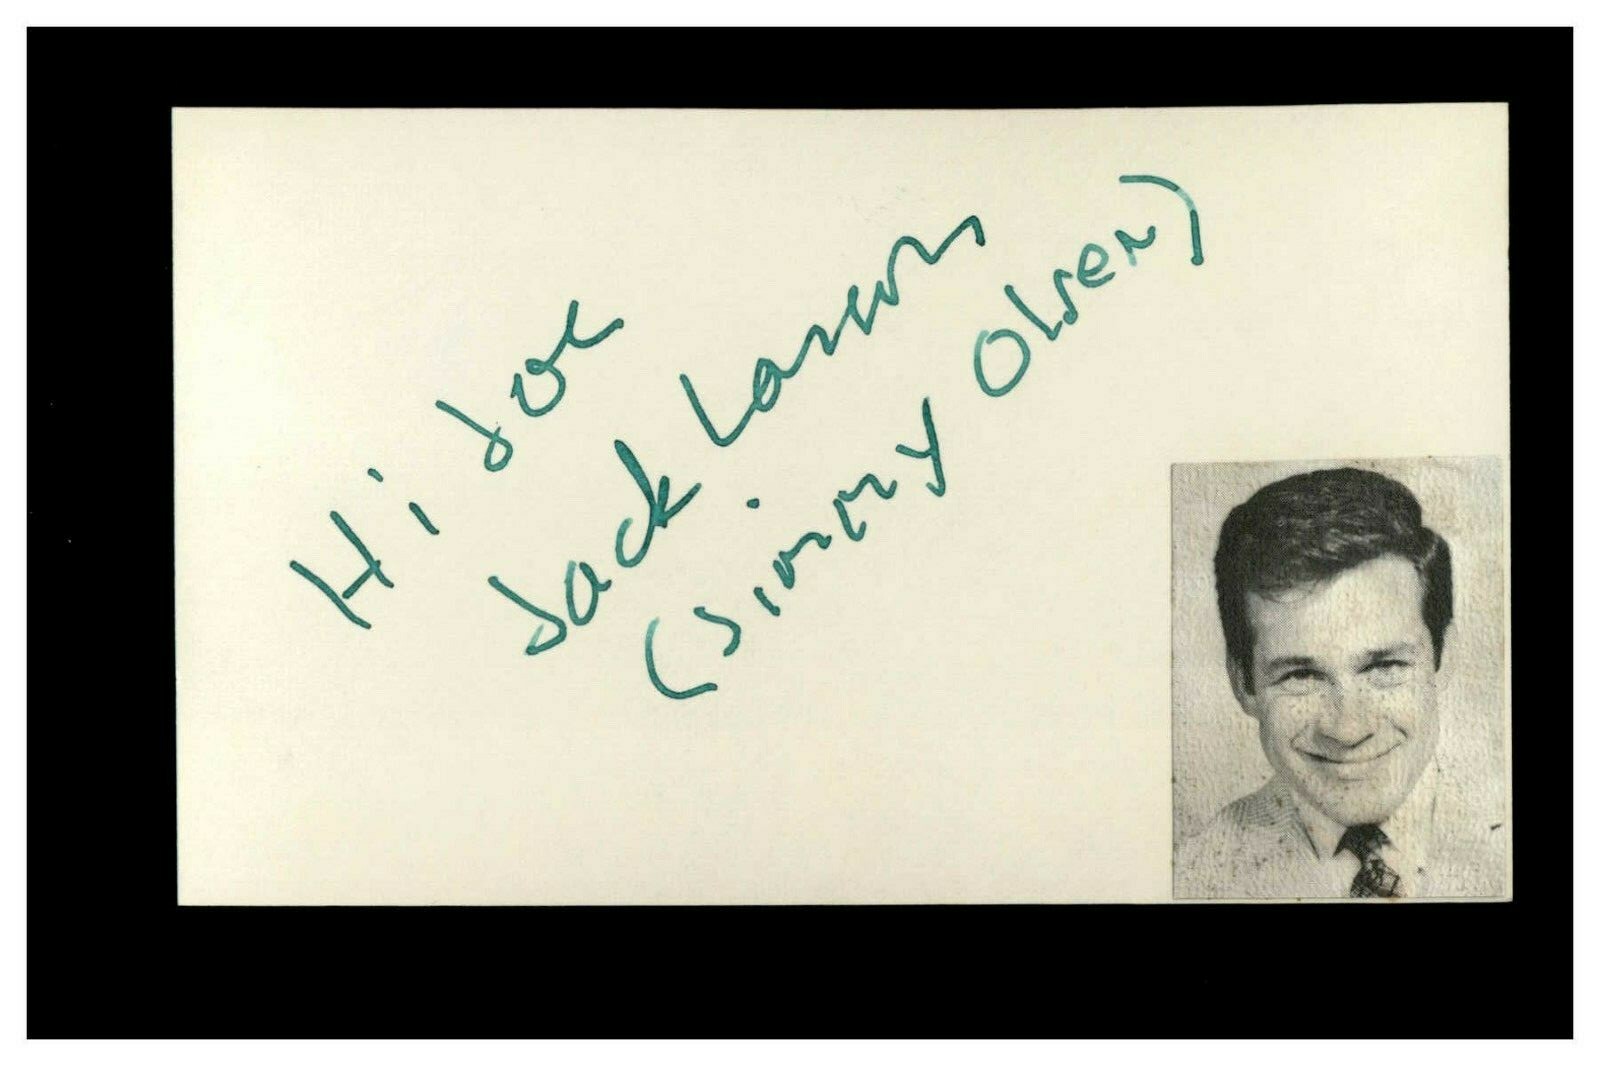 Hi Joe
Jack Larson
(Jimmy Olsen)